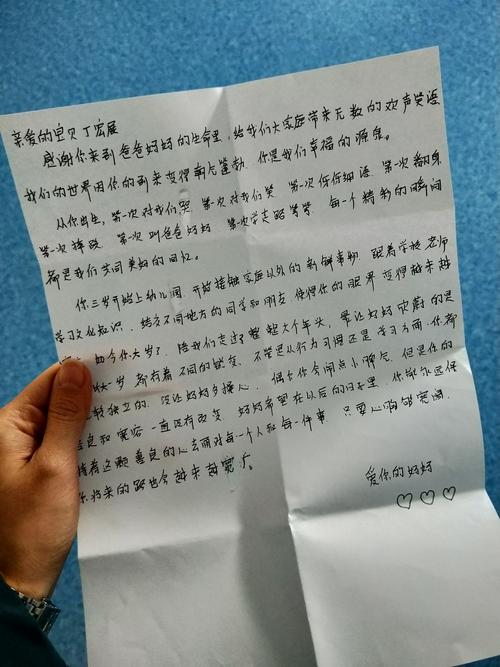 亲爱的宝贝丁宏展
感谢你来到爸爸妈妈的生命里，给我们大家庭带来无数的欢声笑语
我们的世界因你的到来变得朝气蓬勃，你是我们幸福的源泉。
从你出生，第一次对我们哭 第一次对我们笑 第一次 第一次翻身
第一次 第一次叫爸爸妈妈 第一次学走路 每一个精彩的瞬间
都是我们共同美好的回忆。
你三岁开始上幼儿园，开始接触家庭以外的新鲜事物，跟着学校老师
学习文化知识，结交不同地方的同学和朋友，使得你的眼界变得越来越
如今你六岁了，陪我们走过了整整六个年头，最让妈妈欣慰的是
岁 都有着不同的蜕变，不管是从行为习惯还是学习方面，你都
较独立的，没让妈妈多操心，偶尔你会闹点小脾气，但是你的
善良和宽容一直没有改变，妈妈希望在以后的日子里，你能永远保
持着这颗善良的心去面对每一个人和每一件事，只要心胸够宽阔，
你将来的路也会越来越宽广。
爱你的妈妈
♡♡♡